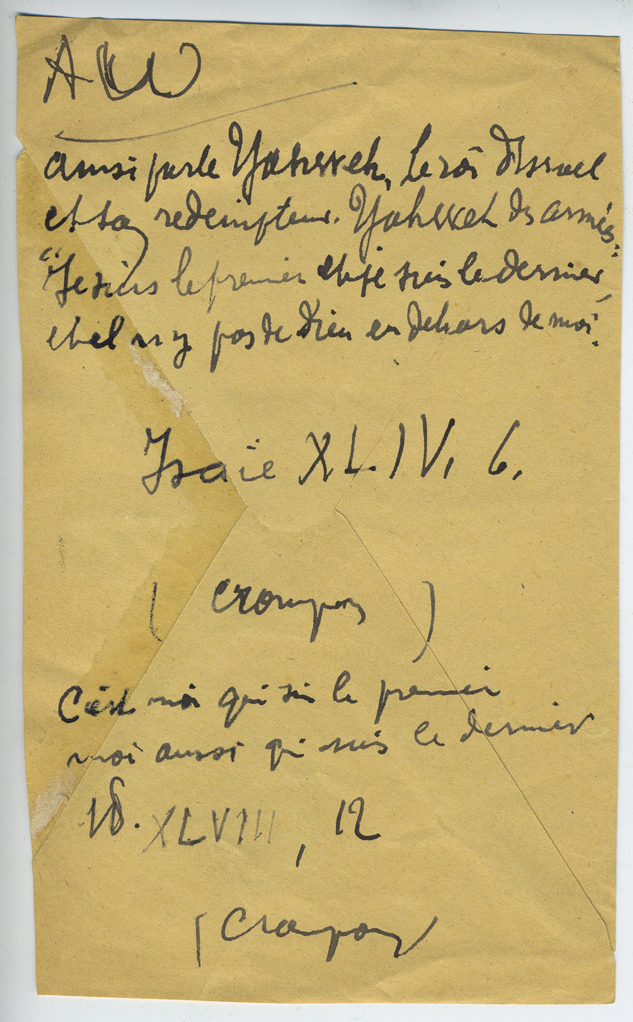 A W
ainsi parle Yahweh, le roi d'Israel
et son redempteur. Yahweh des armées:
"Je suis le premier et je suis le dernier,
et il n'y pas de Dieu en dehors de moi.
Isaie XL.IV. 6.
(Crampon)
C'est moi qui suis le premier
moi aussi qui suis le dernier
XLVIII, 12
(Crampon)